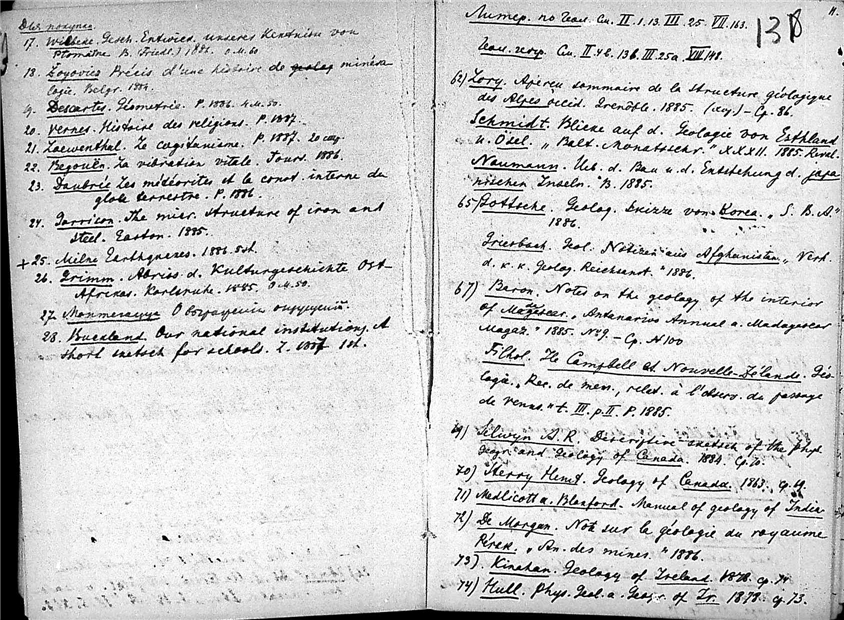 Для покупки
17. Gesch. Entwick. unseres Kenntniss von
Ptomaïne B. (Friedl.) 1886. 0 M. 60
18. Zoyovics Précis d'une histoire de geolog minéra
logie. Belgr. 1884.
9. Descartes. Géometrie. P. 1886. 4 M. 50.
20. Vernes. Histoire des religions. P. 1887.
21. Loewenthal. Le cogitanisme. P. 1887.
22. Begouën. La vibration vitale. Tours. 1886.
23. Daubrée Les météorites et la const. interne du
globe terrestre. P. 1886.
24. Garrison. The micr. structure of iron and
steel. Easton. 1885.
+ 25. Milne Earthquakes. 1886. 5sh.
26. Grimm. Abriss d. Kulturgeschichte Ost-
Afrikas. Karlsruhe. 1885. 0 M. 50.
27. Обозрацеции
28. Buckland Our national institutions. A
short sketsch for schools. L. 1887 1sh.
11.
Литер. по Геол. См. II. 1. 13. III. 25. VII. 163.
138
Геол. геогр. См. II 42. 136. III. 25a. VIII 148.
62) Lory. Aperçu sommaire de la structure géologique
des Alpes occid. Grenoble. 1885. – Ср. 86.
Schmidt. Blicke auf d. Geologie von Esthland
u. Ösel. „Balt. Monatsschr." XXXII. 1885. Reval.
Naumann. Ueb. d. Bau u. d. Entstehung d. japa
nischen Inseln. B. 1885.
65) Gottsche. Geolog. Skizze von Korea. „S. B. A"
1886.
Griesbach. Geol. Notizen aus Afghanistan „Verh.
d. k. k. Geolog. Reichsanst." 1886.
67) Baron. Notes on the geology of the interior
of Madagascar. „Antanarivo Annual a. Madagascar
Magaz." 1885. No 9. – Ср. N 100
Filhol. Ile Campbell et Nouvelle-Zélande. Géo-
logie. „Rec. de mem., relat. à l'observ. du passage
de Venus." t. III. p. II. P. 1885.
69) Selwyn A. R. Descriptive sketsch of the phys.
geogr. and geology of Canada. 1884. Ср. 70.
70) Herry Hind. Geology of Canada. 1863. Ср. 69.
71) Medlicott a. Blanford. Manual of geology of India
72) De Morgan. Note sur la géologie du royaume
Pérak. „An. des mines." 1886.
73). Kinahan. Geology of Ireland. 1878. Ср. 74
74) Hull. Phys. Geol. a. Geogr. of Ir. 1878. Ср. 73.